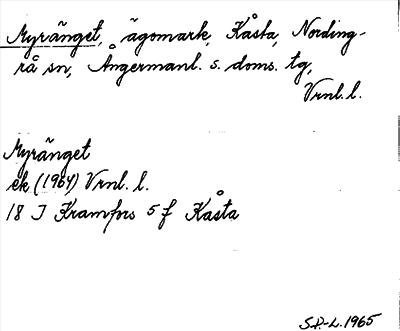 Myränget, ägomark, Kåsta, Nording-
rå sn, Ångermanl. s. doms. tg,
Vrnl. l.
Myränget
ek (1964) Vrnl. l.
18 J Kramfors 5 f Kåsta
S.P.-L. 1965